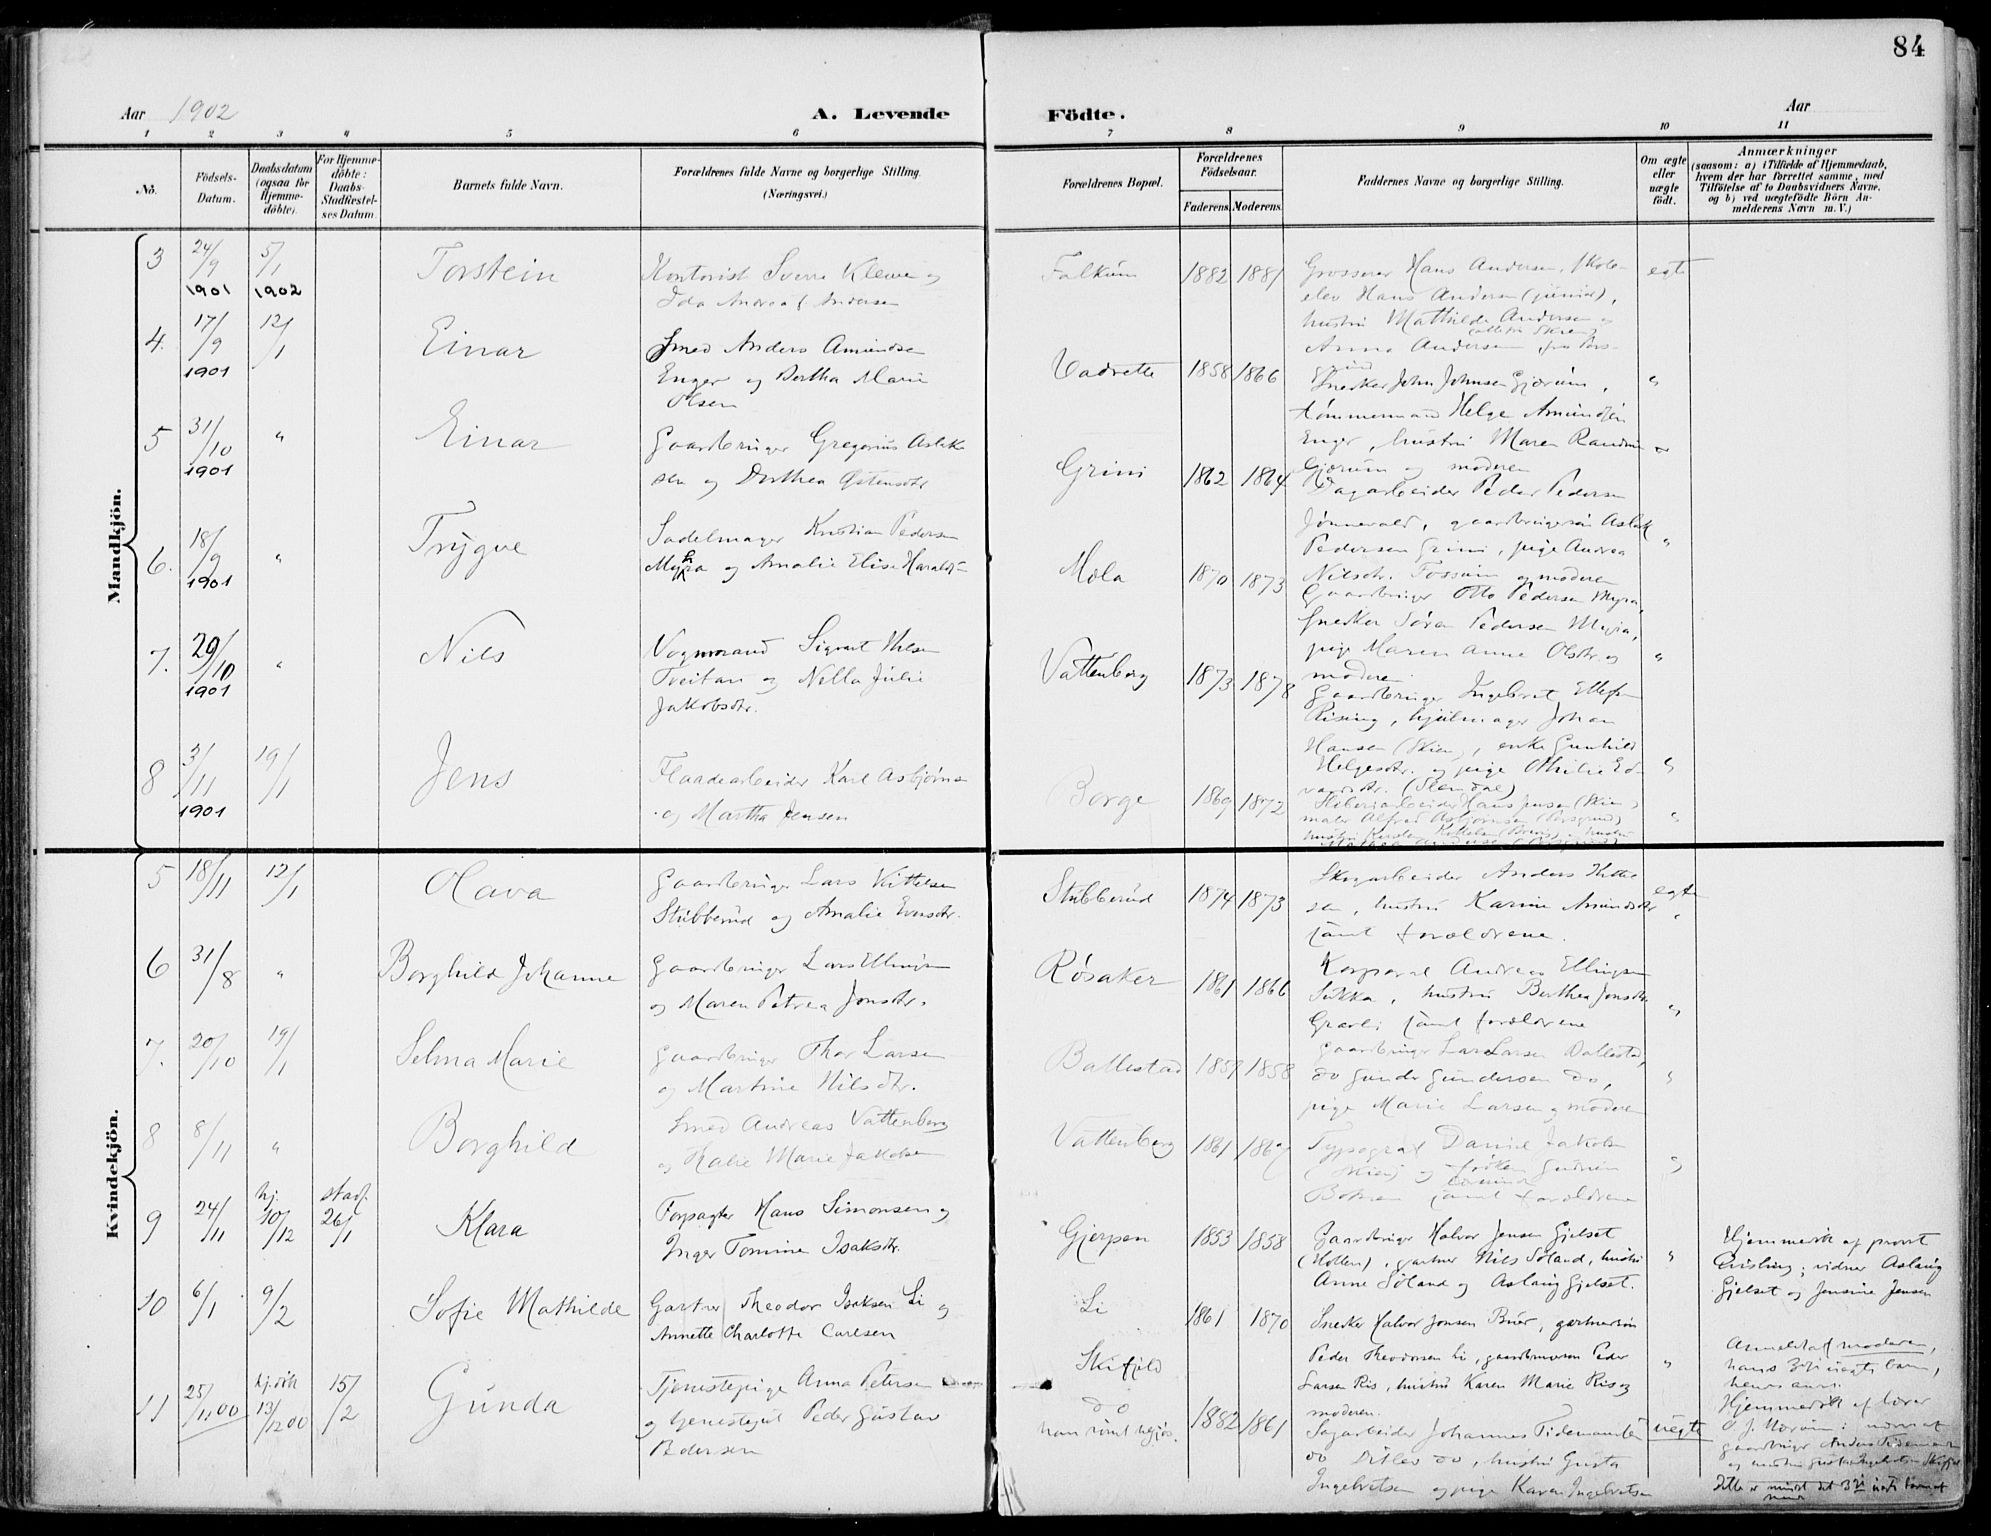 84
Aar 1902
A. Levende Födte.
Aar
1 2 3 4 5 6 7 8 9 10 11
No.
Födsels-Datum.
Daabsdatum (ogsaa for Hjemme-döbte).
For Hjemme-döbte: Daabs-Stadfæstel-ses Datum.
Barnets fulde Navn.
Forældrenes fulde Navne og borgerlige Stilling.
(Næringsvei.)
Forældrenes Bopæl.
Forældrenes Födselsaar.
Faderens. Moderens.
Faddernes Navne og borgerlige Stilling.
Om ægte eller uægte födt.
Anmærkninger
(saasom: a) i Tilfælde af Hjemmedaab,
hvem der har forrettet samme, med
Tilföielse af to Daabsvidners Navne,
og b) ved uægtefödte Börn An-
melderens Navn m. V.)
Mandkjön.
3 24/9 1901 5/1 1902 Torstein
Kontorist Sverre Klewe og
Ida Andrea Andersen
Falkum 1882 1881
Grosserer Hans Andersen, skole-
elev Hans Andersen (junior),
hustru Mathilde Andersen
Anna Andersen
egte
4. 17/9 1901 12/1 Einar
Smed Anders Amundsen
Enger og Bertha Marie
Olsen
Vadrette 1858 1866
Snedker John Johnsen Gjærum,
tømmermand Helge Amundsen
Enger, hustru Maren
Gjærum og moderen
"
5 31/10 1901 " Einar
Gaardbruger Gregorius Aslak
sen og Dorthea Østensdtr
Grini 1862 1864
Dagarbeider Peder Pedersen
Jønnevald, gaardbrugersøn Aslak
Pedersen Grini, pige Andrea
Nilsdtr. Fossum og moderen
6. 18/9 1901 " Trygve
Sadelmager Kristian Pedersen
Myhra og Amalie Elise
Mæla 1870 1873
Gaardbruger Otto Pedersen Myra,
snedker Søren Pedersen Myra,
pige Maren Anne Olsdtr og
moderen.
"
7. 29/10 1901 " Nils
Vognmand Sigvart Nilsen
Tveitan og Nella Julie
Jakobsdtr.
Vattenberg 1873 1878
Gaardbruger Ingebret Ellefsen
Rising, hjulmager Johan
Hansen (Skien), enke Gunhild
Helgesdtr. og pige Othilie Ed-
vardsdtr.
"
8 3/11 1901 19/1 Jens
Flaadearbeider Karl Asbjørnsen
og Martha Jensen
Borge 1869 1872
Hans Jensen (Skien)
maler Alfred Asbjørnsen (Porsgrund)
"
Kvindekjön.
5 18/11 12/1 Olava
Gaardbruger Lars Kittelsen
Stubberud og Amalie Evensdtr.
Stubberud 1874 1873
Skogarbeider Anders Kittel
sen, hustru Karine Amundsdtr
samt forældrene.
egte
"
6 31/8 " Borghild Johanne
Gaardbruger Lars Ellingsen
og Maren Petrea Jonsdtr.
Røsaker 1861 1866
Korporal Andreas Ellingsen
Sukka, hustru Berthea Jonsdtr
Gravli samt forældrene
"
7. 20/10 19/1 Selma Marie
Gaardbruger Thor Larsen
og Martine Nilsdtr.
Ballestad 1859 1858
Gaardbruger Lars Larsen Ballestad,
do Gunder Gundersen do,
pige Marie Larsen og moderen
"
8 8/11 " Borghild
Smed Andreas Vattenberg
og Marie Jakobsen
Vattenberg 1861
Typograf Daniel Jakobsen
(Skien) og frøken Gudrun
samt forældrene
"
9 24/11 hj. 10/12 stadf. 26/1 Klara
Forpagter Hans Simonsen og
Inger Tomine Isaksdtr.
Gjerpen 1853 1858
Gaardbruger Halvor Jensen Gjelset
(Holden), gartner Nils Søland, hustru
Anne Søland og Aslaug Gjelset.
"
Hjemmedøbt af provst
Quisling; vidner Aslaug
Gjelset og Jensine Jensen
10 6/1 9/2 Sofie Mathilde
Gartner Theodor Isaksen Li og
Annette Charlotte Carlsen
Li 1861 1870
Snedker Halvor Jonsen Buer, gartnersøn
Peder Theodorsen Li, gaardbrugersøn Peder
Larsen Ris, hustru Karen Marie Ris og
moderen.
"
11 25/11 00 hj.døbt 13/12 00 15/2 Gunda
Tjenestepige Anna Petersen
og tjenestegut Peder Gustav
Pedersen
Skifjeld
do
1882 1861
Sagarbeider Johannes Tidemandsen
do Ditlev do, hustru Gusta
Ingebretsen og pige Karen Ingebretsen
uegte
Anmeldt af moderen,
hans 3die uægte barn,
Hjemmedøbt af lærer
gaardbruger Anders Tidemandsen
Dette er mindst det 3die